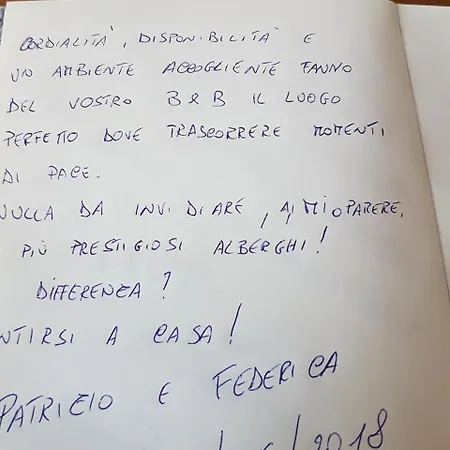 CORDIALITÀ, DISPONIBILITÀ E
UN AMBIENTE ACCOGLIENTE FANNO
DEL VOSTRO B&B IL LUOGO
PERFETTO DOVE TRASCORRERE MOMENTI
DI PACE.
NULLA DA INVIDIARE, A MIO PARERE,
PIÙ PRESTIGIOSI ALBERGHI!
DIFFERENZA?
NTIRSI A CASA!
PATRIZIO E FEDERICA
2018